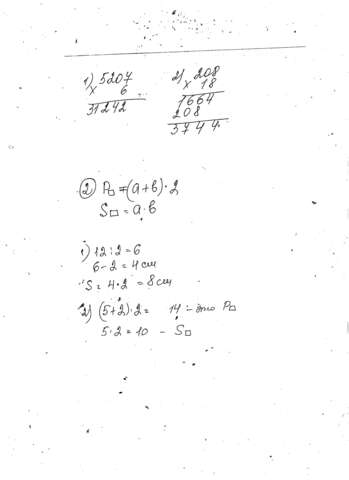 1) 5207
× 6
31242
2) 208
× 18
1664
208
3744
② P□=(a+b)·2
S□=a·b
1) 12:2=6
6-2=4см
S=4·2=8см
2) (5+2)·2= 14-это P□
5·2=10 - S□